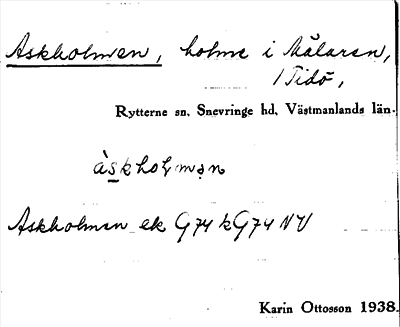 Askholmen, holme i Mälaren,
/Tidö,
Rytterne sn. Snevringe hd. Västmanlands län.
àskhoɫmən
Askholmen ek G74 k G74 NV
Karin Ottosson 1938.